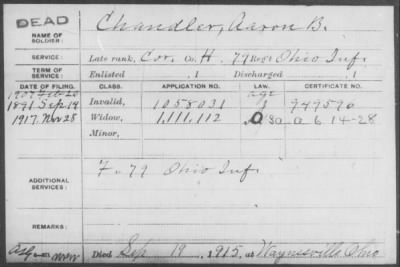 DEAD
NAME OF SOLDIER: Chandler, Aaron B.
SERVICE: Late rank, Cor. Co. H. 79 Reg't Ohio Inf.
TERM OF SERVICE: Enlisted , 1 Discharged , 1
DATE OF FILING. CLASS. APPLICATION NO. LAW. CERTIFICATE NO.
1907 Feb 20 age
1891 Sep 14 Invalid, 1058031 949590
1917 Nov 28 Widow, 1,111,112 a. 6. 14-28
Minor,
ADDITIONAL SERVICES: F-79 Ohio Inf.
REMARKS:
Died Sep 19, 1915, at Waynesville Ohio